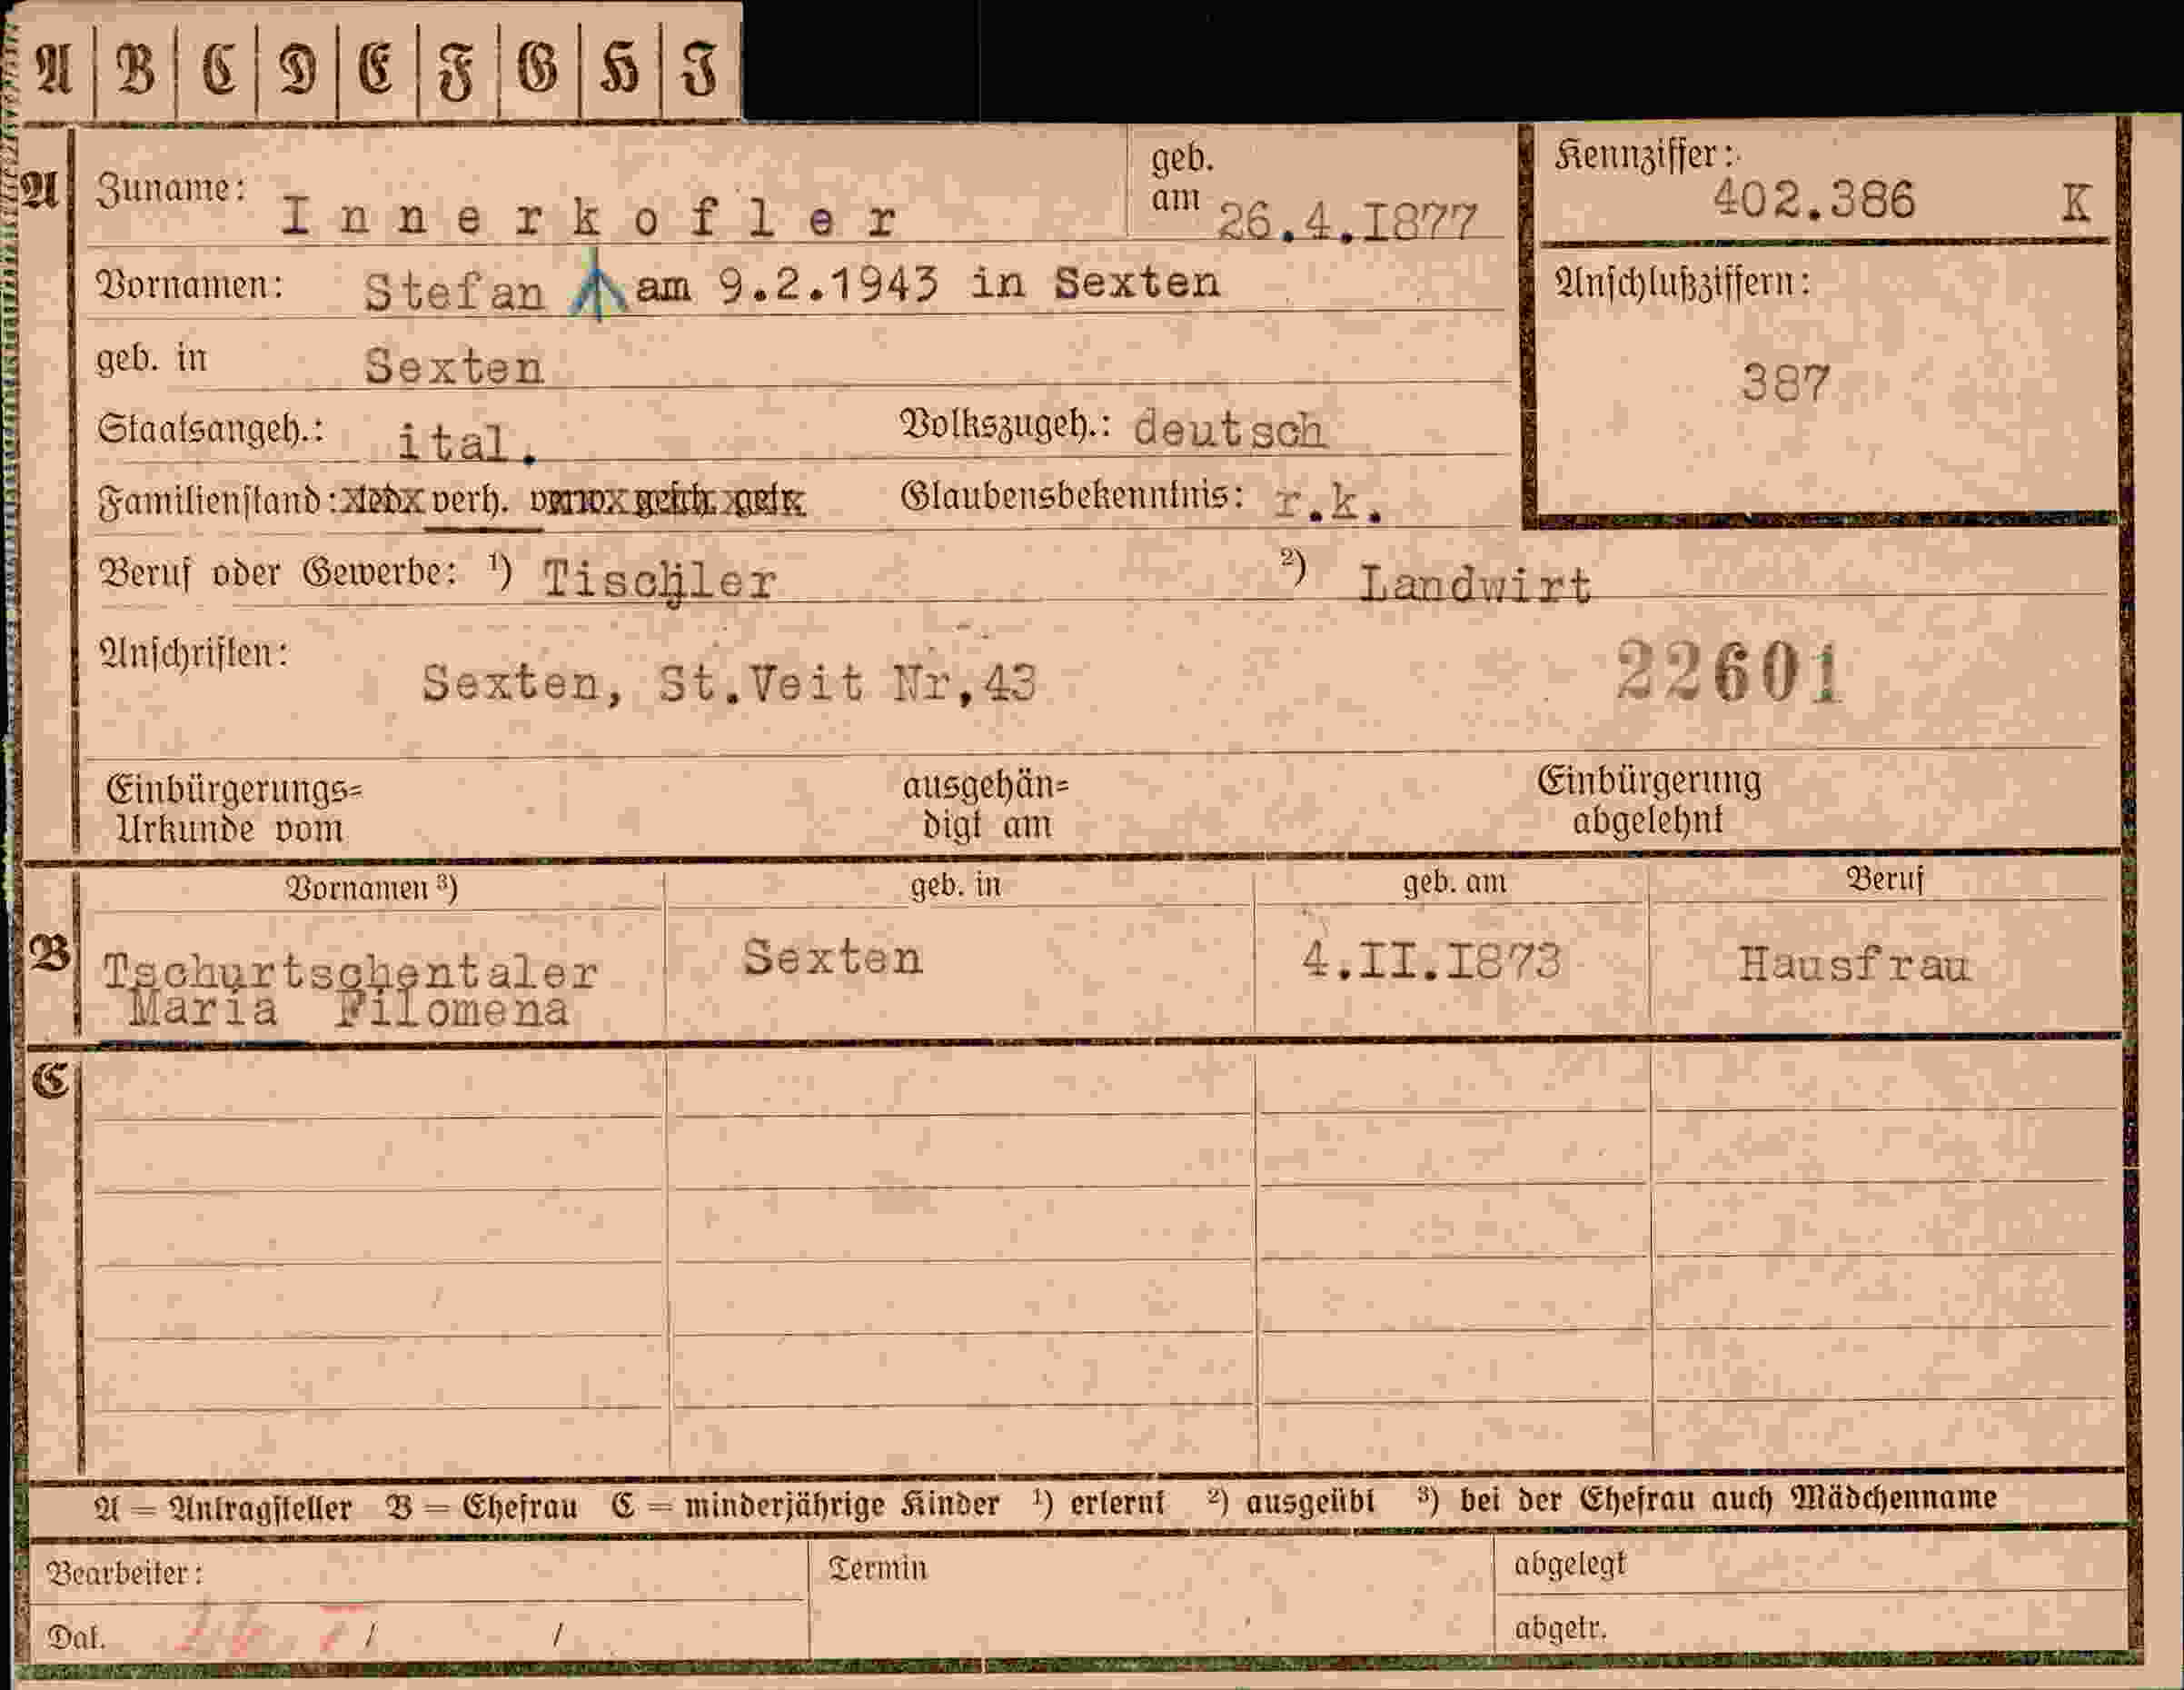 A B C D E F G H I
A Zuname: Innerkofler geb. am 26.4.I877 Kennziffer: 402.386 K
Vornamen: Stefan am 9.2.1943 in Sexten Anschlußziffern:
geb. in Sexten 387
Staatsangeh.: ital. Volkszugeh.: deutsch
Familienstand: verh. Glaubensbekenntnis: r.k.
Beruf oder Gewerbe: ¹) Tischler ²) Landwirt
Anschriften: Sexten, St.Veit Nr,43 22601
Einbürgerungs= ausgehän= Einbürgerung
Urkunde vom digt am abgelehnt
Vornamen ³) geb. in geb. am Beruf
B Tschurtschentaler Sexten 4.II.I873 Hausfrau
Maria Filomena
C
A = Antragsteller B = Ehefrau C = minderjährige Kinder ¹) erlernt ²) ausgeübt ³) bei der Ehefrau auch Mädchenname
Bearbeiter: Termin abgelegt
Dat. / / abgetr.